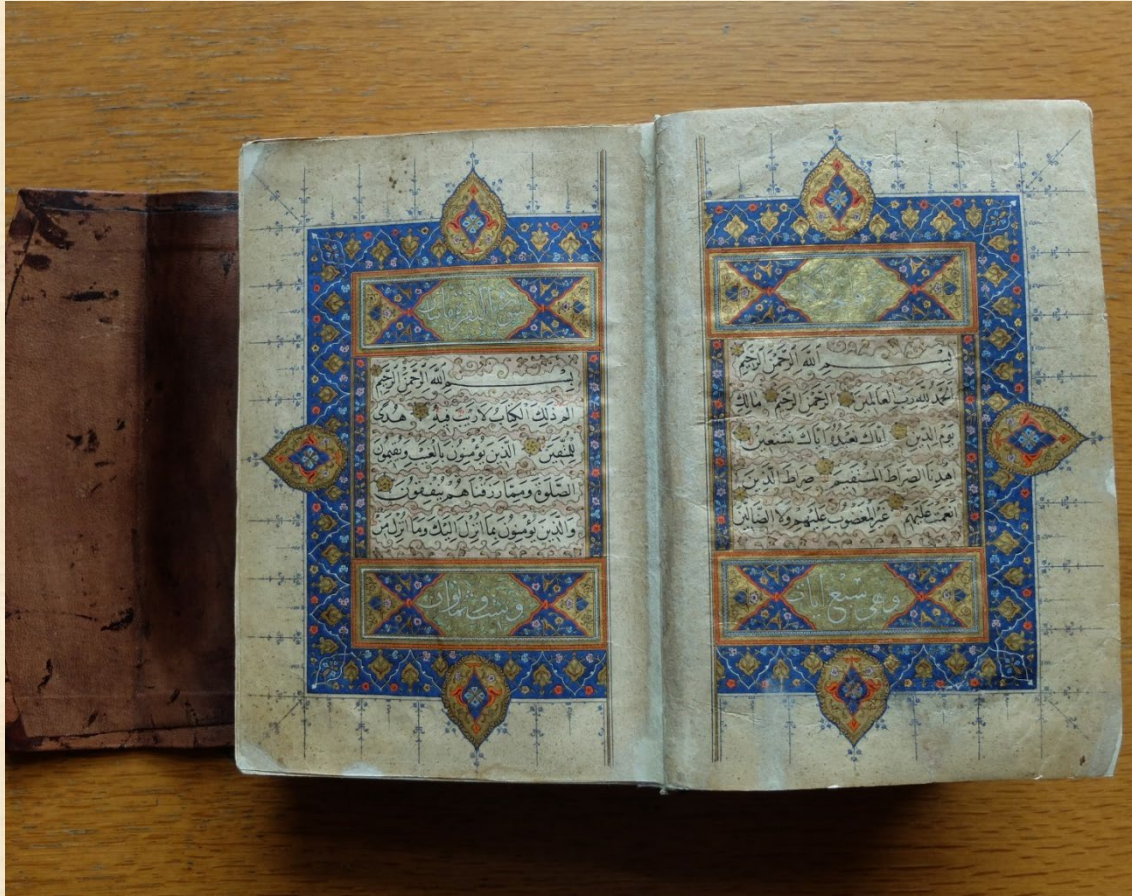 بسم الله الرحمن الرحيم
الحمد لله رب العالمين الرحمن الرحيم مالك
يوم الدين اياك نعبد و اياك نستعين
اهدنا الصراط المستقيم صراط الذين
انعمت عليهم غير المغضوب عليهم ولا الضالين
وهي سبع ايات
بسم الله الرحمن الرحيم
الم ذلك الكتاب لا ريب فيه هدى
للمتقين الذين يؤمنون بالغيب ويقيمون
الصلوة ومما رزقناهم ينفقون
والذين يؤمنون بما انزل اليك وما انزل من